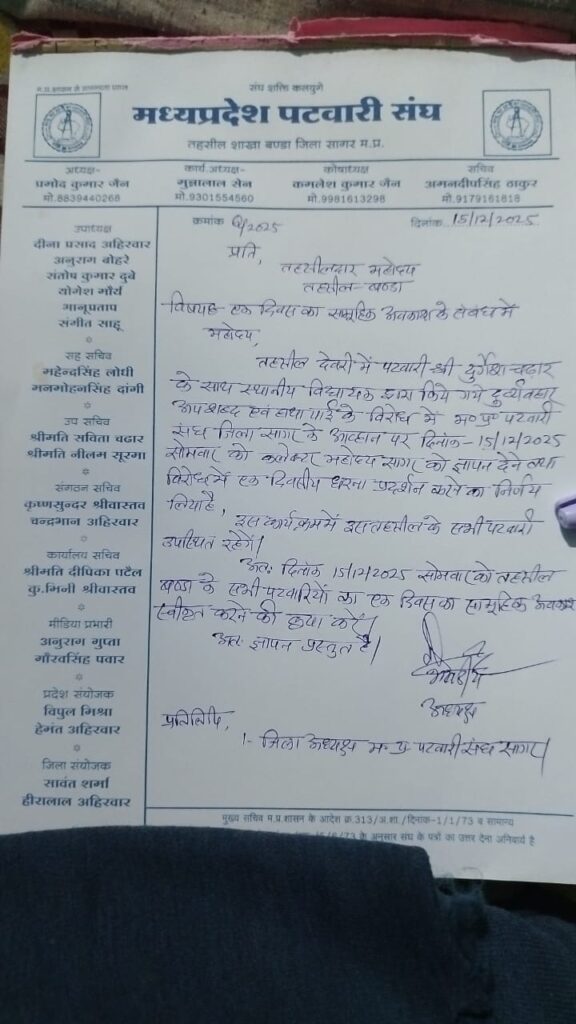 संघ शक्ति कलयुगे
मध्यप्रदेश पटवारी संघ
तहसील शाखा बण्डा जिला सागर म.प्र.
अध्यक्ष-
प्रमोद कुमार जैन
मो.8839440268
कार्य.अध्यक्ष-
मुन्नालाल सेन
मो.9301554560
कोषाध्यक्ष
कमलेश कुमार जैन
मो.9981613298
सचिव
अमनदीपसिंह ठाकुर
मो.9179161818
उपाध्यक्ष
दीना प्रसाद अहिरवार
अनुराग बोहरे
संतोष कुमार दुबे
योगेश मौर्य
भानूप्रताप
संगीत साहू
सह सचिव
महेन्दसिंह लोधी
मनमोहनसिंह दांगी
उप सचिव
श्रीमति सविता चढार
श्रीमति नीलम सूरमा
संगठन सचिव
कृष्णसुन्दर श्रीवास्तव
चन्द्रभान अहिरवार
कार्यालय सचिव
श्रीमति दीपिका पटैल
कु.मिनी श्रीवास्तव
मीडिया प्रभारी
अनुराग गुप्ता
गौरवसिंह पवार
प्रदेश संयोजक
विपुल मिश्रा
हेमंत अहिरवार
जिला संयोजक
सावंत शर्मा
हीरालाल अहिरवार
क्रमांक /2025
दिनांक 15/12/2025
प्रति,
तहसीलदार महोदय
तहसील-बण्डा
विषयः- एक दिवस का सामूहिक अवकाश के संबंध में
महोदय,
तहसील देवरी में पटवारी श्री दुर्गेश चढार
के साथ स्थानीय विधायक द्वारा किये गये दुर्व्यवहार
अपशब्द एवं हाथापाई के विरोध में म०प्र० पटवारी
संघ जिला सागर के आव्हान पर दिनांक-15/12/2025
सोमवार को कलेक्टर महोदय सागर को ज्ञापन देने तथा
विरोध में एक दिवसीय धरना प्रदर्शन करने का निर्णय
लिया है,
इस कार्यक्रम में इस तहसील के सभी पटवारी
उपस्थित रहेगें।
अतः दिनांक 15/12/2025 सोमवार को तहसील
बण्डा के सभी पटवारियों का एक दिवस का सामूहिक अवकाश
स्वीकृत करने की कृपा करें।
अतः ज्ञापन प्रस्तुत है।
अध्यक्ष
प्रतिलिपि,
1- जिला अध्यक्ष म.प्र. पटवारी संघ सागर।
मुख्य सचिव म.प्र.शासन के आदेश क्र.313/अ.शा./दिनांक-1/1/73 व सामान्य
/6/73 के अनुसार संघ के पत्रों का उत्तर देना अनिवार्य है